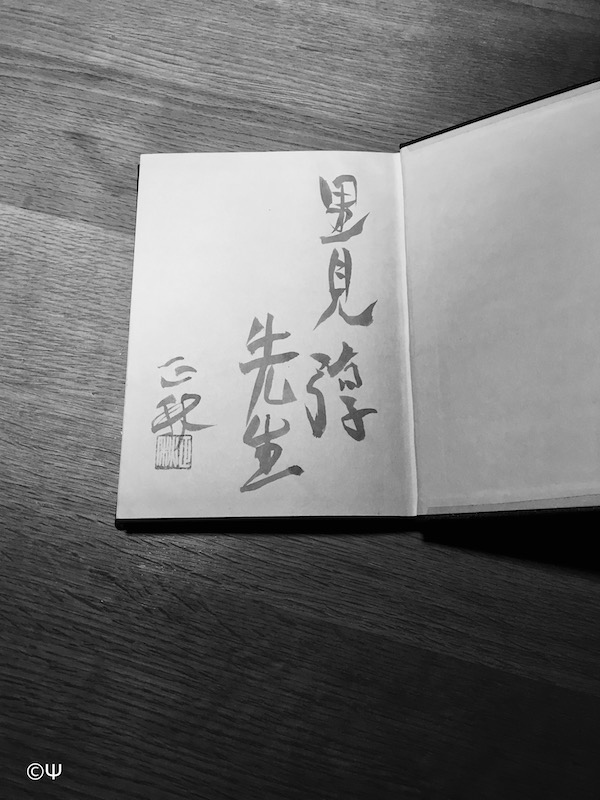 里見弴
先生
正秋
©Ψ